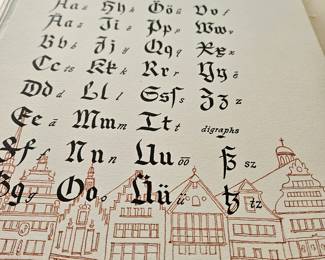 Aa a Hh h Öö ö Vv f
Ää Ii e Pp p Ww v
Bb b Jj y Qq q Xx x
Cc ts Kk k Rr r Yy ö
Dd d Ll l Sſs s Zz z
Ee ā Mm m Tt t digraphs
Ff f Nn n Uu ōō ß sz
Gg g Oo o Üü ü tz tz